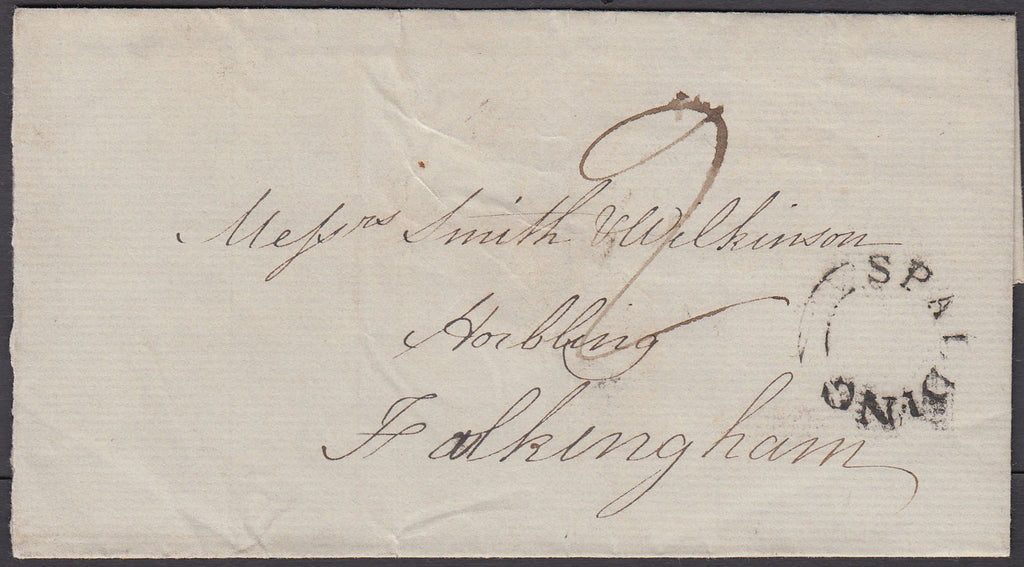 2
Messrs Smith & Wilkinson
Horbling
Falkingham
SPALDING